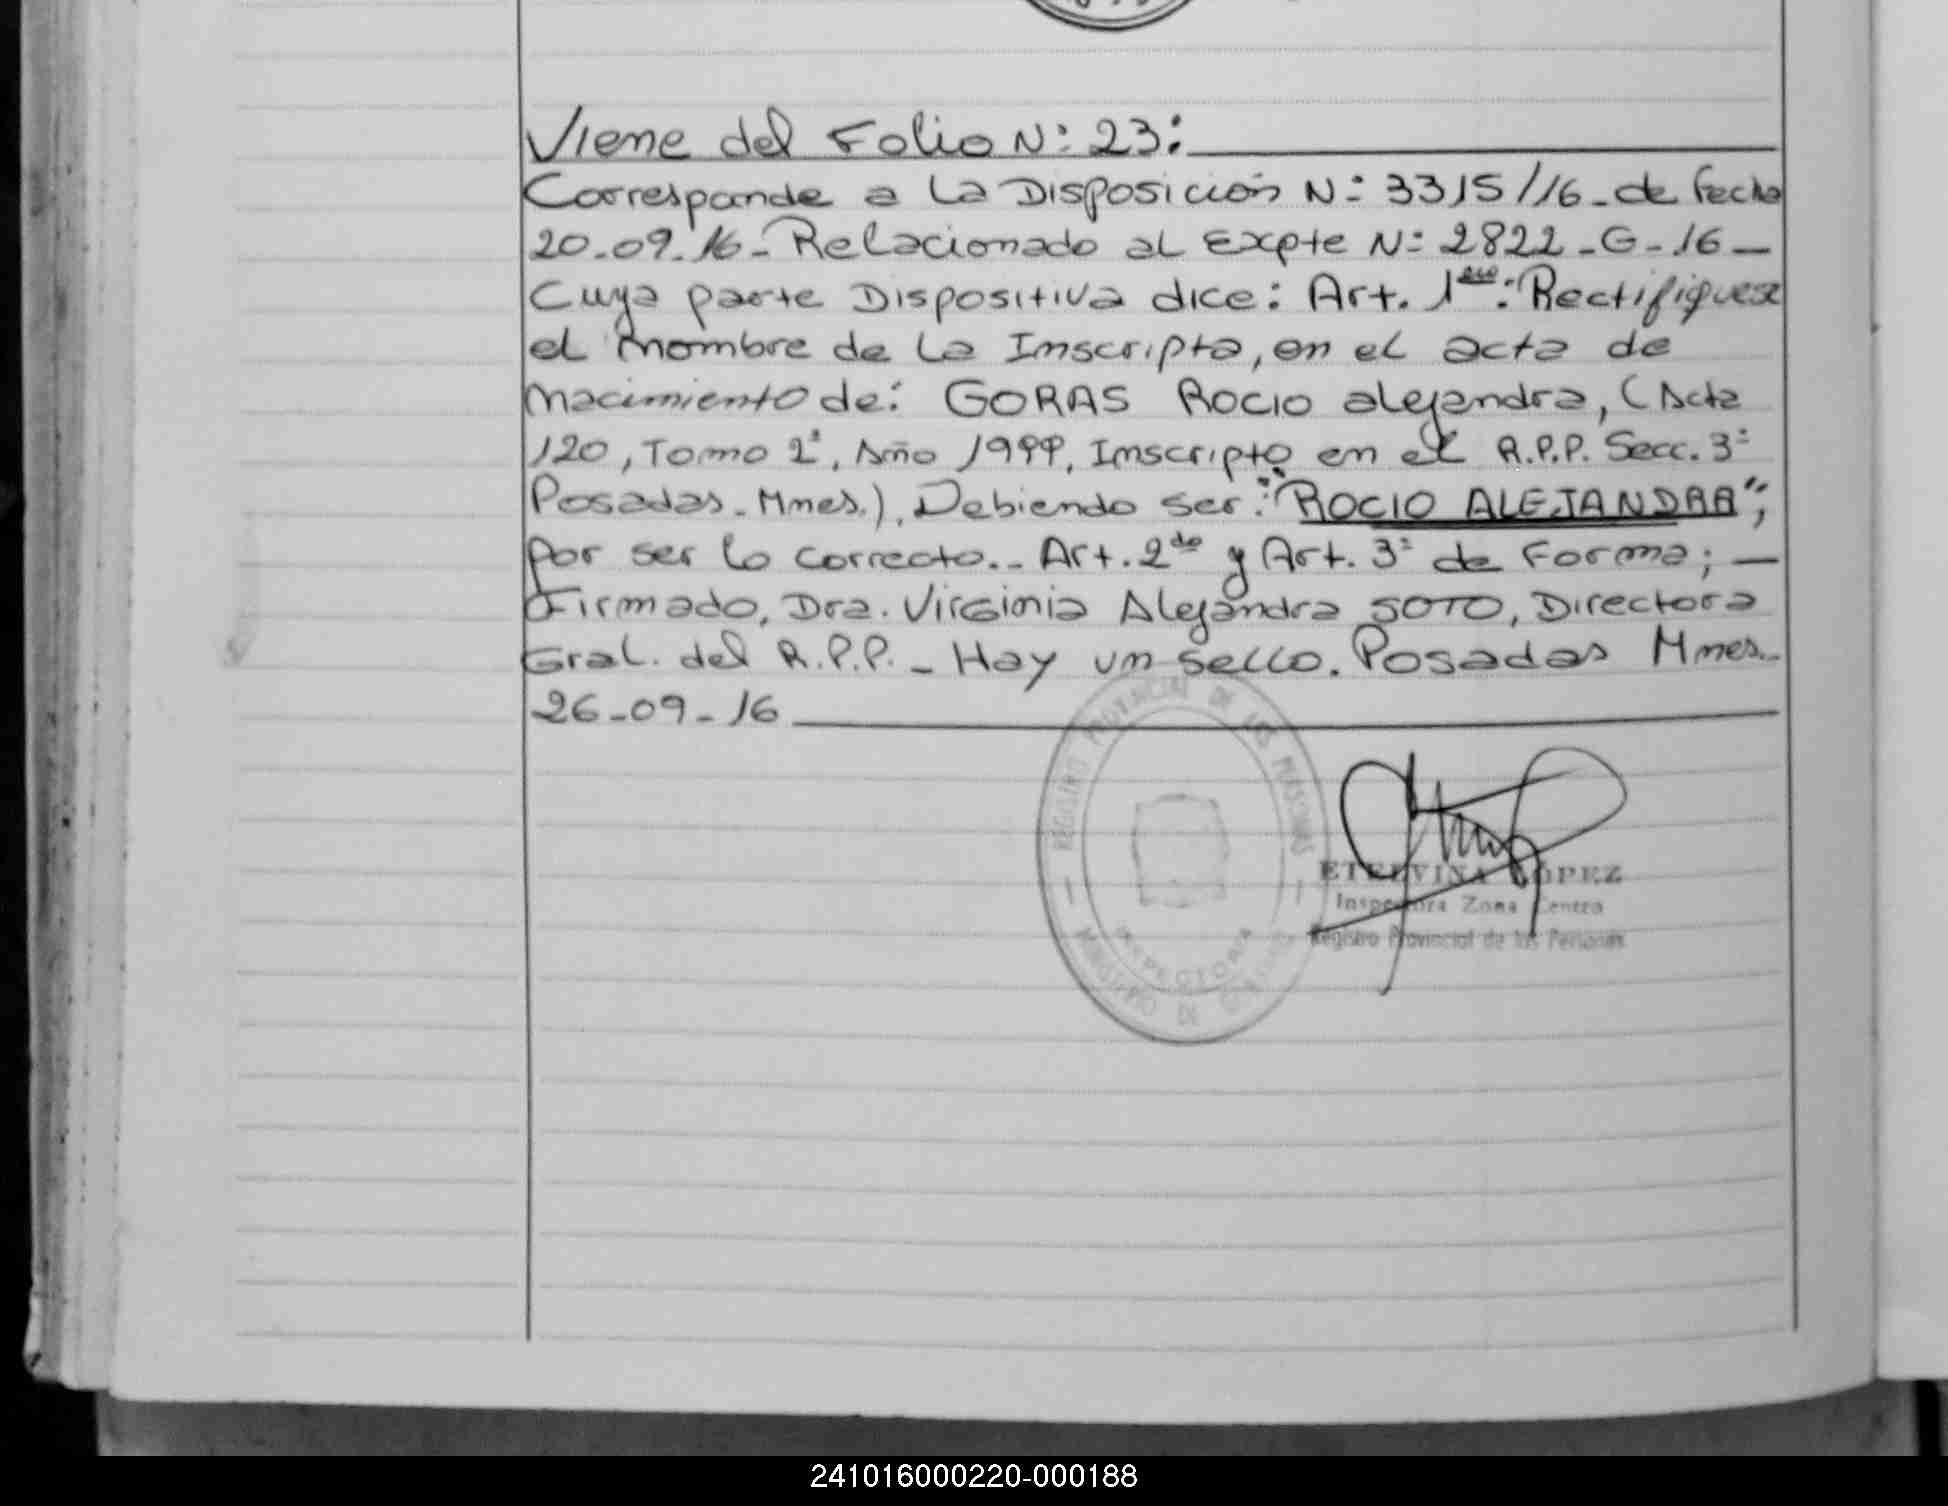 Viene del Folio N: 23:
Corresponde a La Disposición N: 3315/16 - de fecha
20-09-16 - Relacionado al Expte N: 2822 - G - 16 -
Cuya parte Dispositiva dice: Art. 1ero: "Rectifiquese
el nombre de La Inscripta, en el acta de
nacimiento de: GORAS Rocio alejandra, (Acta
120, Tomo 2º, Año 1999, Inscripto en el R.P.P. Secc. 3º
Posadas - Mnes.), Debiendo ser: "ROCIO ALEJANDRA";
por ser lo correcto.- Art. 2do y Art. 3º de Forma; -
Firmado, Dra. Virginia Alejandra SOTO, Directora
Gral. del R.P.P. - Hay un sello. Posadas Mnes.
26-09-16
REGISTRO PROVINCIAL DE LAS PERSONAS
INSPECTORA
MINISTERIO DE GOBIERNO
ETELVINA LOPEZ
Inspectora Zona Centro
Registro Provincial de las Personas
241016000220-000188